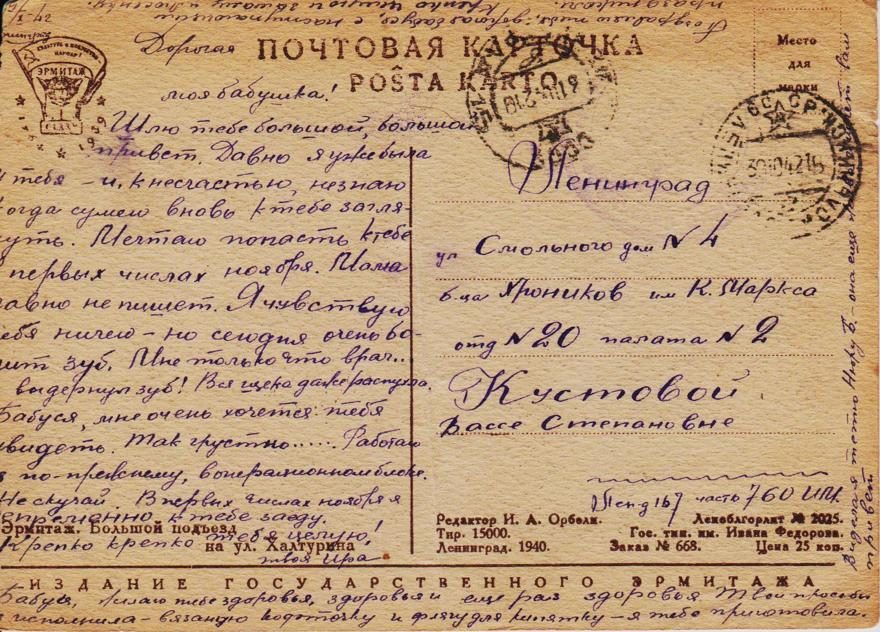 праздником.
Поздравляю тебя, дорогая бабуся с наступающим
42
Дорогая
моя бабушка!
Шлю тебе большой, большой
привет. Давно я уже была
тебя - и, к несчастью, не знаю
когда сумею вновь к тебе загля-
нуть. Мечтаю попасть к тебе
первых числах ноября. Мама
давно не пишет. Я чувствую
себя ничего - но сегодня очень бо-
лит зуб. Мне только что врач...
выдернул зуб! Вся щека даже распухла.
Бабуся, мне очень хочется тебя
увидеть. Так грустно...... Работаю
по-прежнему, в операционном блоке.
Не скучай. В первых числах ноября я
непременно к тебе заеду.
Крепко крепко тебя целую!
твоя Ира
Бабуся, желаю тебе здоровья, здоровья и еще раз здоровья Твои просьбы
исполнила - вязаную кофточку и флягу для кипятку - я тебе приготовила.
ПОЧТОВАЯ КАРТОЧКА
POŜTA KARTO
ЭРМИТАЖ
Место
для
марки
СССР
Ленинград
ул Смольного дом № 4
б-ца Хроников им К. Маркса
отд № 20 палата № 2
Кустовой
Вассе Степановне
часть 760 ИМ.
Эрмитаж. Большой подъезд
на ул. Халтурина
Редактор И. А. Орбели.
Тир. 15000.
Ленинград. 1940.
Леноблгорлит № 2025.
Гос. тип. им. Ивана Федорова.
Заказ № 668. Цена 25 коп.
ИЗДАНИЕ ГОСУДАРСТВЕННОГО ЭРМИТАЖА
Видела я тетю Нюру Б. - она еще
привет